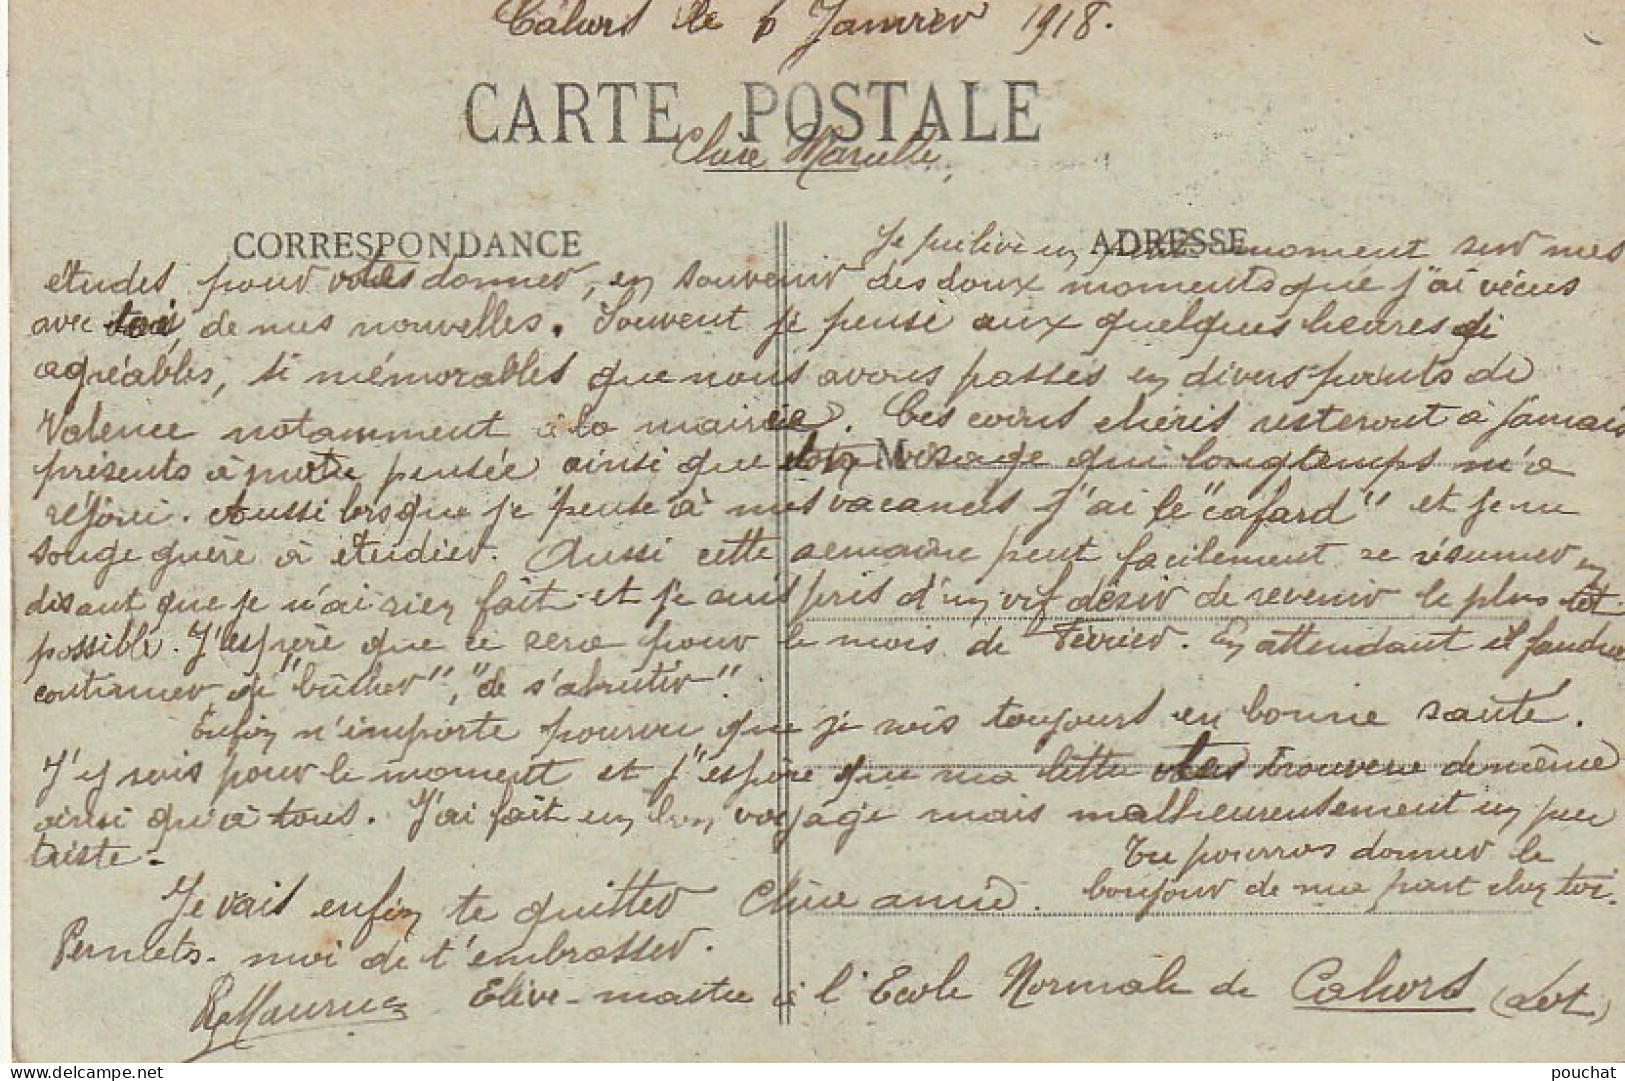 Cahors le 6 Janvier 1918.
CARTE POSTALE
Chère Marcelle,
CORRESPONDANCE
ADRESSE
Je prélève un petit moment sur mes
études pour vous donner, en souvenir des doux moments que j'ai vécus
avec toi, de mes nouvelles. Souvent je pense aux quelques heures si
agréables, si mémorables que nous avons passés en divers points de
Valence notamment à la mairie. Ces coins chéris resteront à jamais
présents à notre pensée ainsi que ton visage qui longtemps m'a
M
réjoui. Aussi lorsque je pense à mes vacances j'ai le "cafard" et je ne
songe guère à étudier. Aussi cette semaine peut facilement se résumer en
disant que je n'ai rien fait et je suis pris d'un vif désir de revenir le plus tôt
possible. J'espère que ce sera pour le mois de Février. En attendant il faudra
continuer de "bûcher", "de s'abrutir".
Enfin n'importe pourvu que je sois toujours en bonne santé.
J'y suis pour le moment et j'espère que ma lettre trouvera de même
ainsi qu'à tous. J'ai fait un bon voyage mais malheureusement un peu
triste.
Tu pourras donner le
bonjour de ma part chez toi.
Je vais enfin te quitter Chère amie.
Permets-moi de t'embrasser.
Elève-maître à l'Ecole Normale de Cahors (Lot)
delcampe.net
pouchat